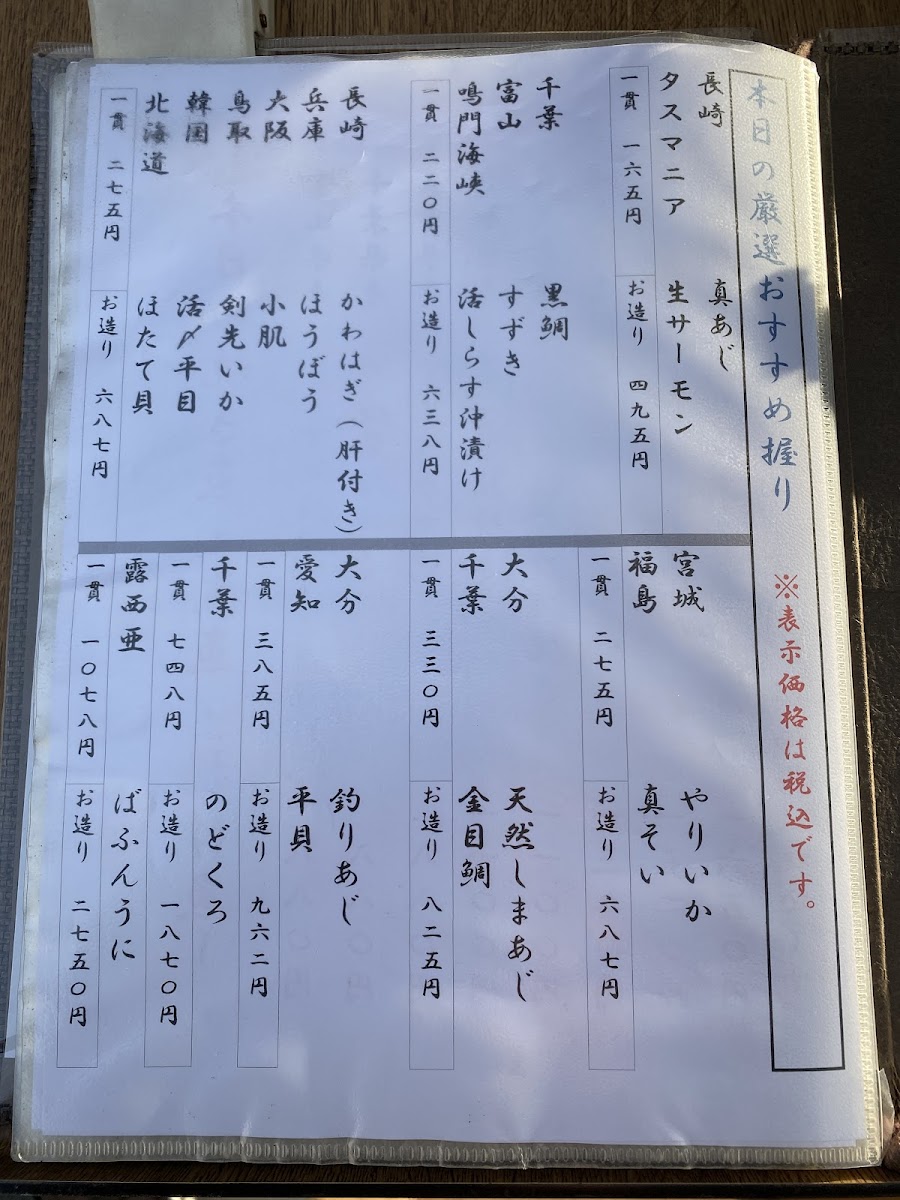 本日の厳選おすすめ握り ※表示価格は税込です。
長崎 真あじ
タスマニア 生サーモン
一貫 一六五円 お造り 四九五円
千葉 黒鯛
富山 すずき
鳴門海峡 活しらす沖漬け
一貫 二二〇円 お造り 六三八円
長崎 かわはぎ(肝付き)
兵庫 ほうぼう
大阪 小肌
鳥取 剣先いか
韓国 活〆平目
北海道 ほたて貝
一貫 二七五円 お造り 六八七円
宮城 やりいか
福島 真そい
一貫 二七五円 お造り 六八七円
大分 天然しまあじ
千葉 金目鯛
一貫 三三〇円 お造り 八二五円
大分 釣りあじ
愛知 平貝
一貫 三八五円 お造り 九六二円
千葉 のどくろ
一貫 七四八円 お造り 一八七〇円
露西亜 ばふんうに
一貫 一〇七八円 お造り 二七五〇円